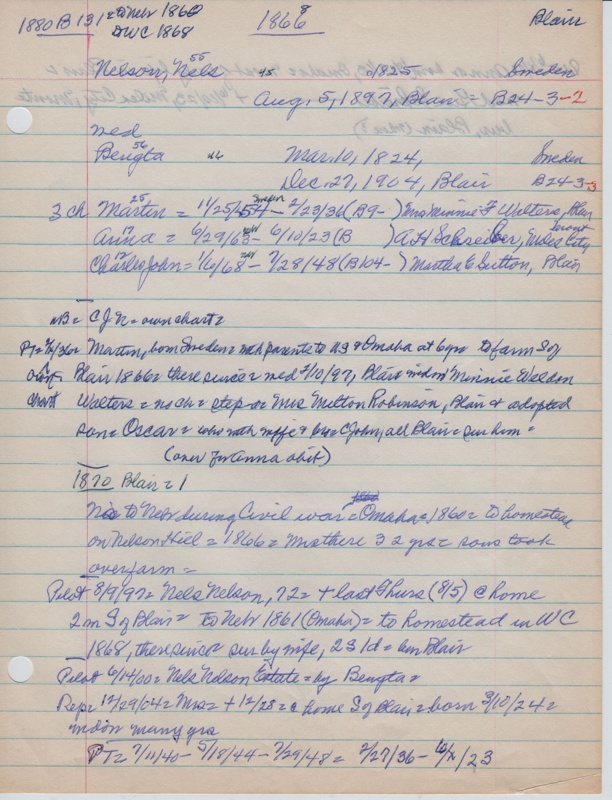 1880 B 131 = to Nebr 1860 1866 8 Blair
DWC 1868
Nelson, Nels 55 45 1825 Sweden
Aug. 5, 1897, Blair = B24-3-2
med
Bengta 56 Mar. 10, 1824, Sweden
Dec. 27, 1904, Blair B24-3-3
3 ch Martin 25 = 11/25/54 Sweden - 2/23/36 (B9- ) Mrs Minnie F Walters, Blair
Anna 17 = 6/29/63 - 6/10/23 (B ) A H Schreiber, Miles City
Charles John 12 = 1/6/68 - 7/28/48 (B104- ) Martha E Sutton, Blair
NB = C J N = own chart =
PT = Martin, born Sweden = with parents to US & Omaha at 6 yrs to farm S of
Blair 1866 = there since = med 2/10/97, Blair Minnie Weldon
chart Walters = no ch = step Mrs Milton Robinson, Blair & adopted
son = Oscar = who with wife & bro = C John, all Blair = sur him =
(over for Anna obit)
1870 Blair = 1
to Nebr during Civil war = Omaha = 1860 = to homestead
on Nelson Hill = 1866 = Mrs there 32 yrs = sons took
over farm =
Pilot 8/9/97 = Nels Nelson, 72 = + last Thurs (8/5) @ home
2 m S of Blair = to Nebr 1861 (Omaha) = to homestead in WC
1868, there since sur by wife, 2S 1d = bur Blair
Pilot 6/14/00 = Nels Nelson Estate = by Bengta =
Rep = 12/29/04 = Mrs = + 12/28 = @ home S of Blair = born 3/10/24 =
many yrs
PT = 7/11/40 - 5/18/44 - 7/29/48 = 2/27/36 - /23